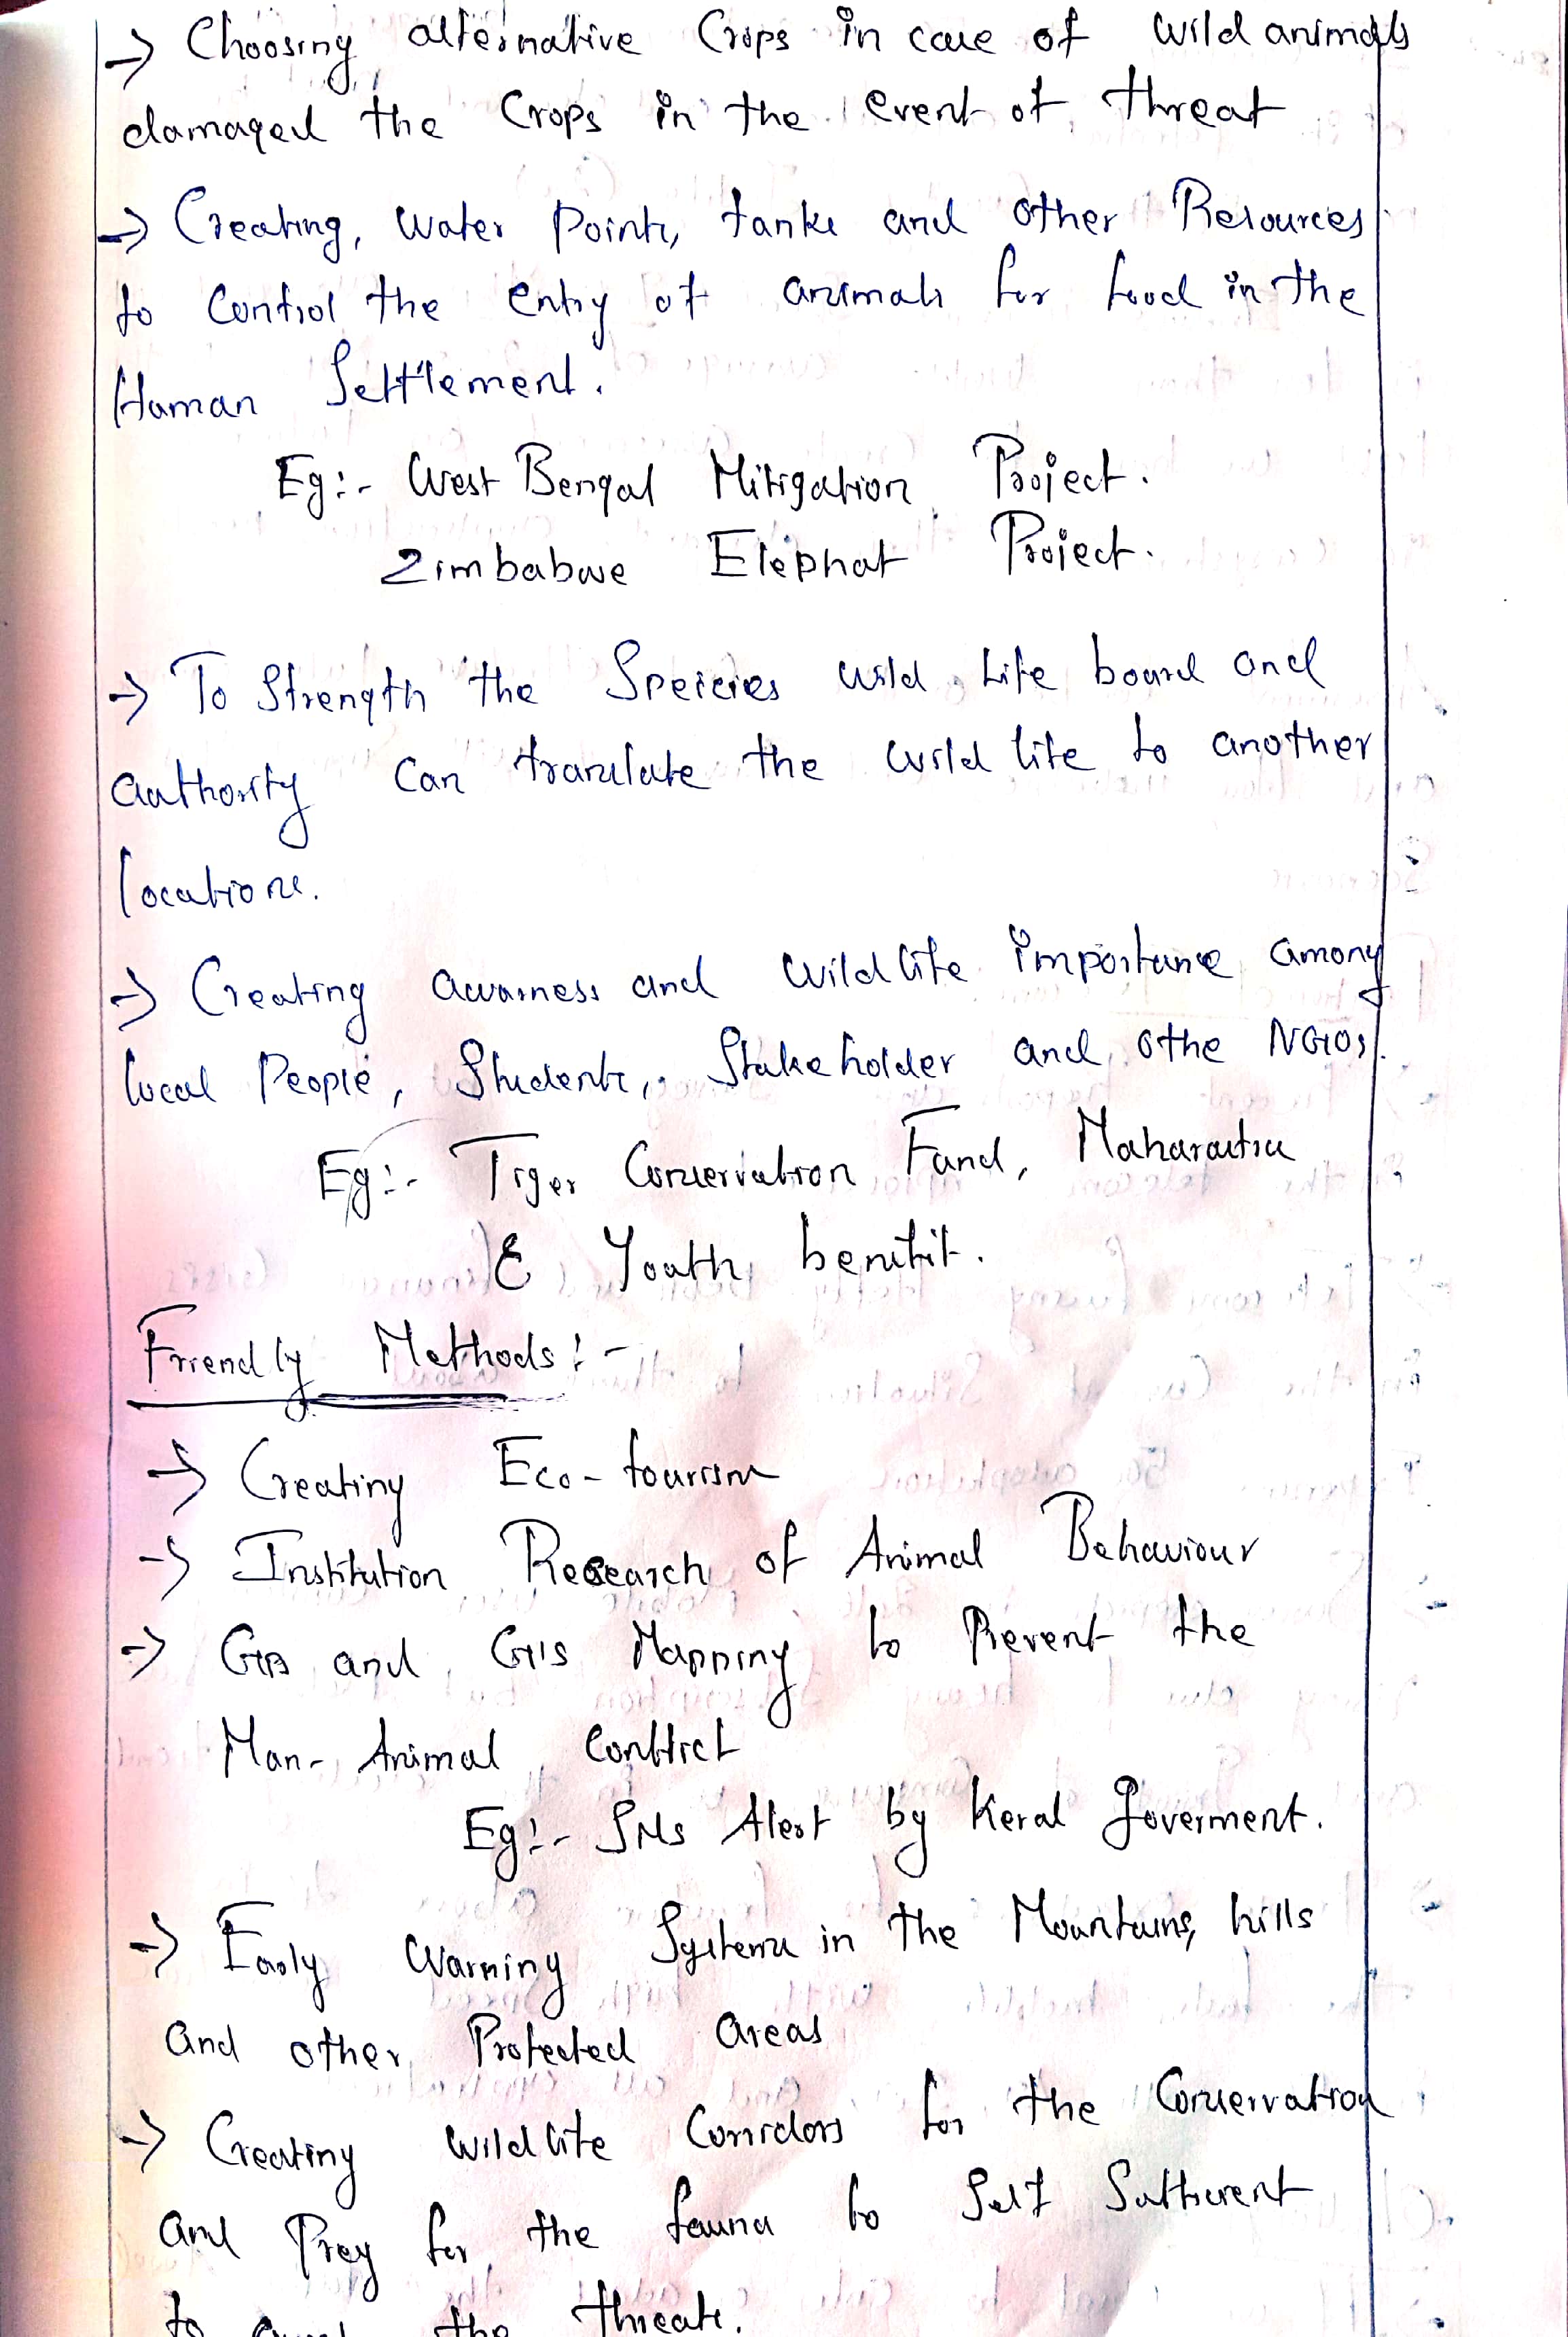 → Choosing alternative Crops in case of wild animals
damaged the Crops in the event of threat
→ Creating, water Points, tanks and other Resources
to Control the entry of animals for food in the
Human Settlement.
Eg:- West Bengal Mitigation Project.
Zimbabwe Elephat Project.
→ To Strength the Speicies wild Life board and
authority Can translate the wild life to another
locations.
→ Creating awarness and wild life importance among
local People, Students, Stakeholder and othe NGOs.
Eg:- Tiger Conservation Fund, Maharastra
& Youth benifit.
Friendly Methods:-
→ Creating Eco-tourism
→ Institution Research of Animal Behaviour
→ and GIS Mapping to Prevent the
Man-Animal Conflict
Eg:- SMS Alert by Keral Goverment.
→ Early Warning Systems in the Mountains, hills
and other Protected areas
→ Creating wild life Corridors for the Conservation
and Prey for the fauna to Self Sufficient
to the threats.